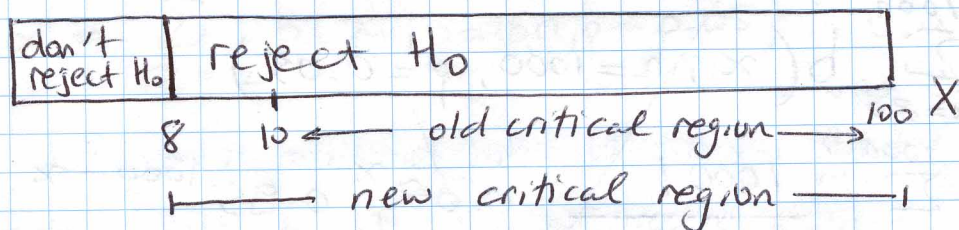 don't
reject H₀
reject H₀
8 10 ← old critical region → 100 X
new critical region